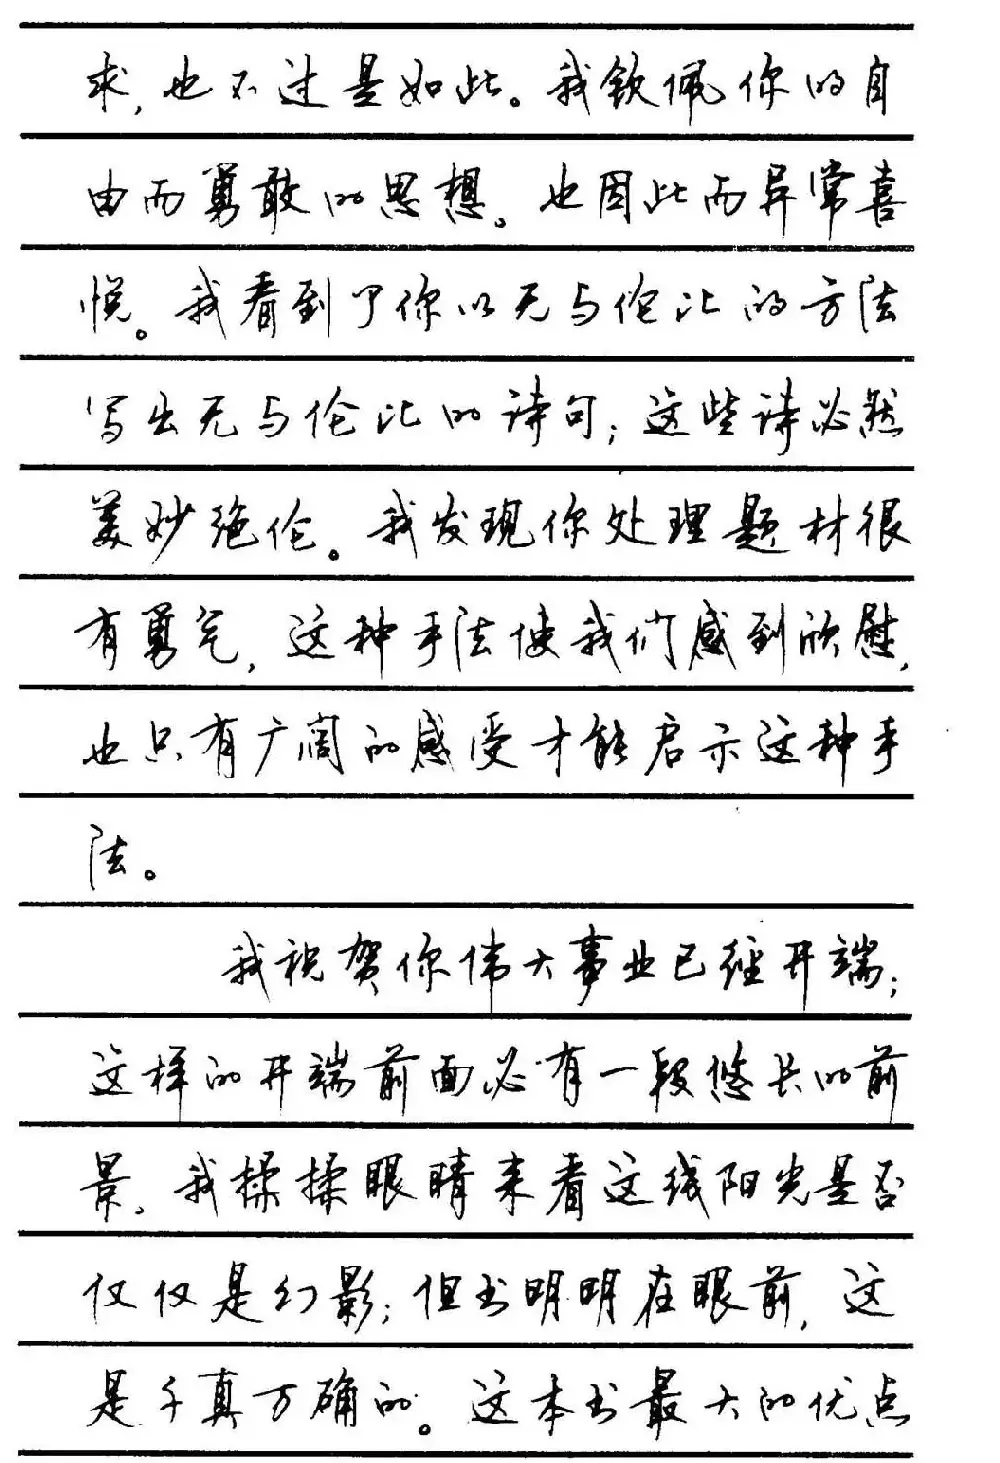 求,也不过是如此。我钦佩你的自
由而勇敢的思想。也因此而异常喜
悦。我看到了你以无与伦比的方法
写出无与伦比的诗句;这些诗必然
美妙绝伦。我发现你处理题材很
有勇气,这种手法使我们感到欣慰,
也只有广阔的感受才能启示这种手
法。
我祝贺你伟大事业已经开端;
这样的开端前面必有一段悠长的前
景,我揉揉眼睛来看这线阳光是否
仅仅是幻影;但书明明在眼前,这
是千真万确的。这本书最大的优点